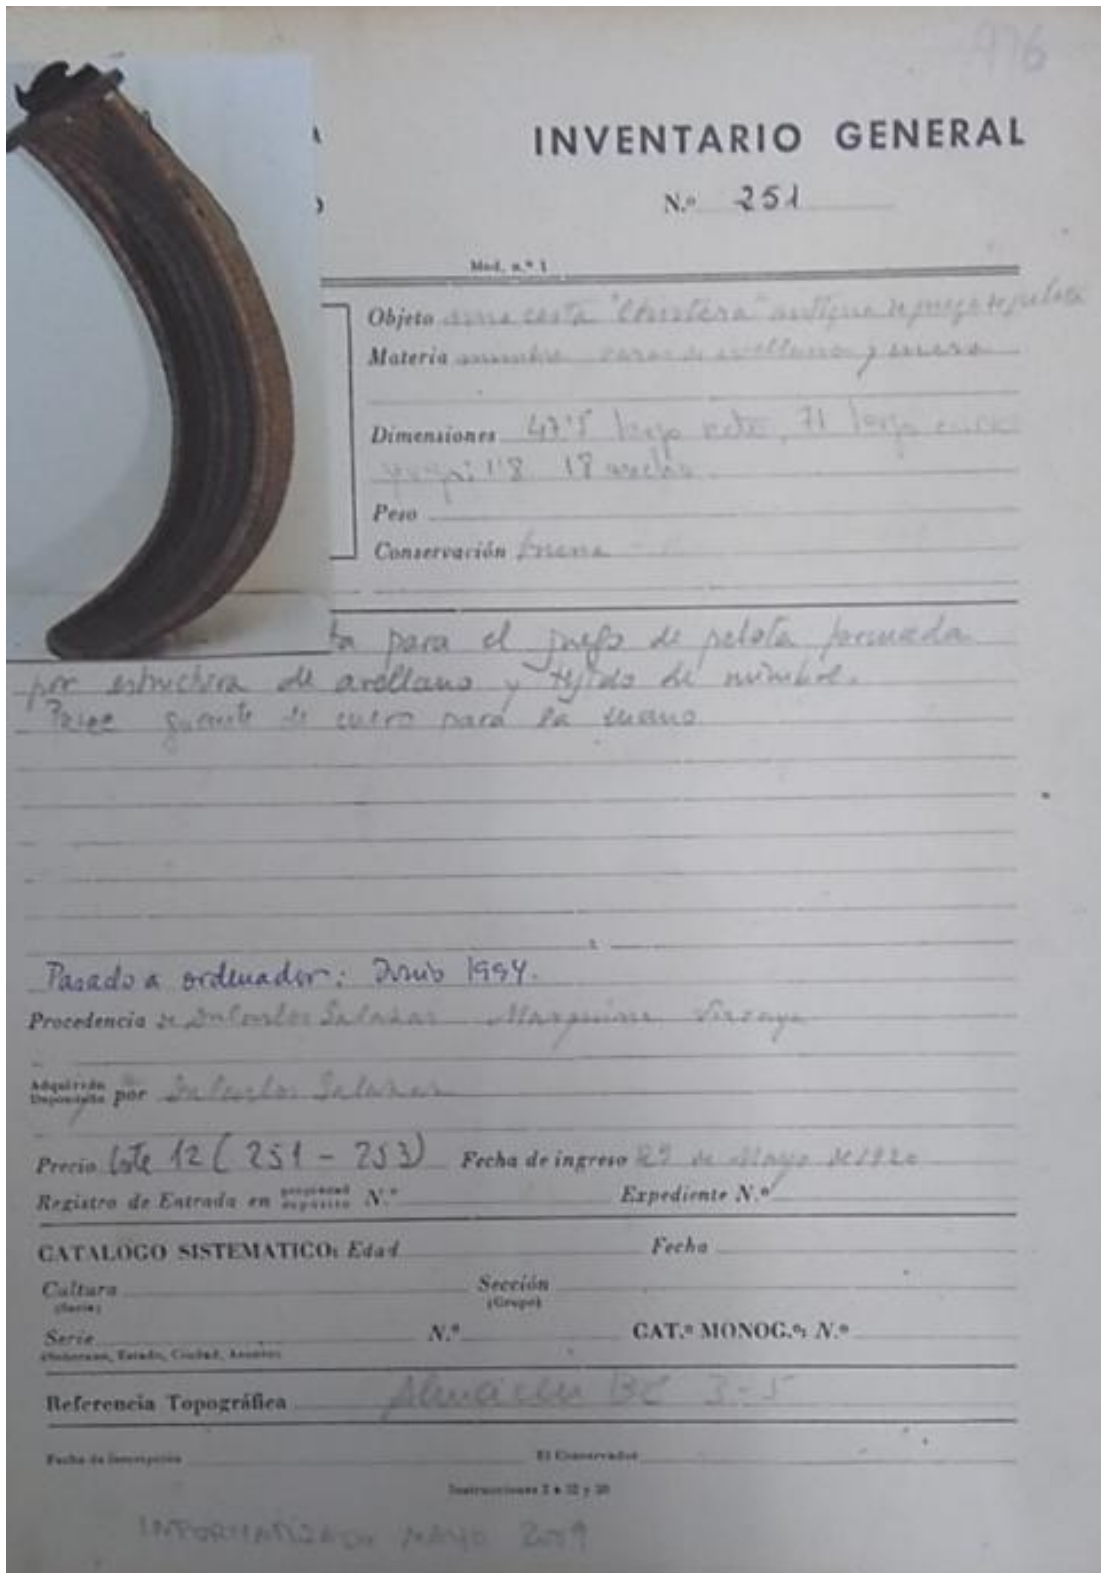 976
INVENTARIO GENERAL
N.º 251
Mod. n.º 1
Objeto una cesta "Chistera" antigua de juego de pelota
Materia mimbre varas de avellano y cuero
Dimensiones 47'5 largo recto, 71 largo
1'8 18 ancho
Peso
Conservación buena
ta para el juego de pelota formada
por estructura de avellano y tejido de mimbre.
Posee guante de cuero para la mano
Pasado a ordenador: Junio 1994.
Procedencia de Dn Carlos Salazar Marquina Vizcaya
Adquirido
Depositado por Dn Carlos Salazar
Precio lote 12 (251 - 253) Fecha de ingreso 29 de Mayo de 1920
Registro de Entrada en propiedad depósito N.º Expediente N.º
CATALOGO SISTEMATICO: Edad Fecha
Cultura Sección
(Serie) (Grupo)
Serie N.º CAT.º MONOG.º: N.º
(Soberano, Estado, Ciudad, Asunto)
Referencia Topográfica Almacén BC 3-5
Fecha de Inscripción El Conservador
Instrucciones 2 a 12 y 20
INFORMATIZADO MAYO 2009